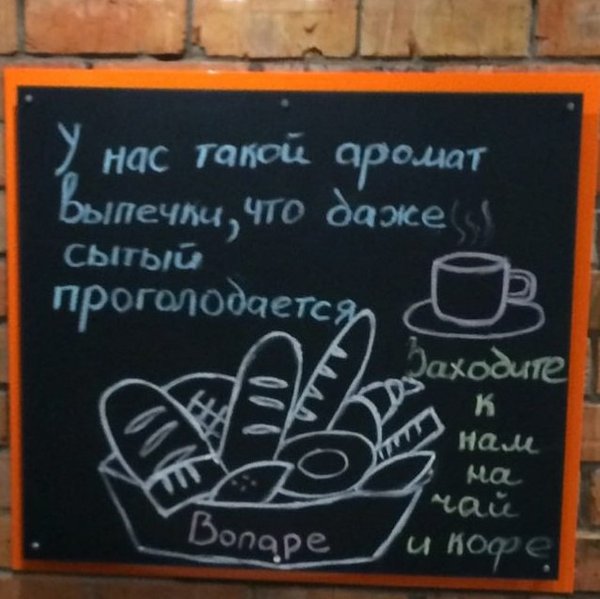 У нас такой аромат
выпечки, что даже
сытый
проголодается
Заходите
к
нам
на
чай
и кофе
Вопаре